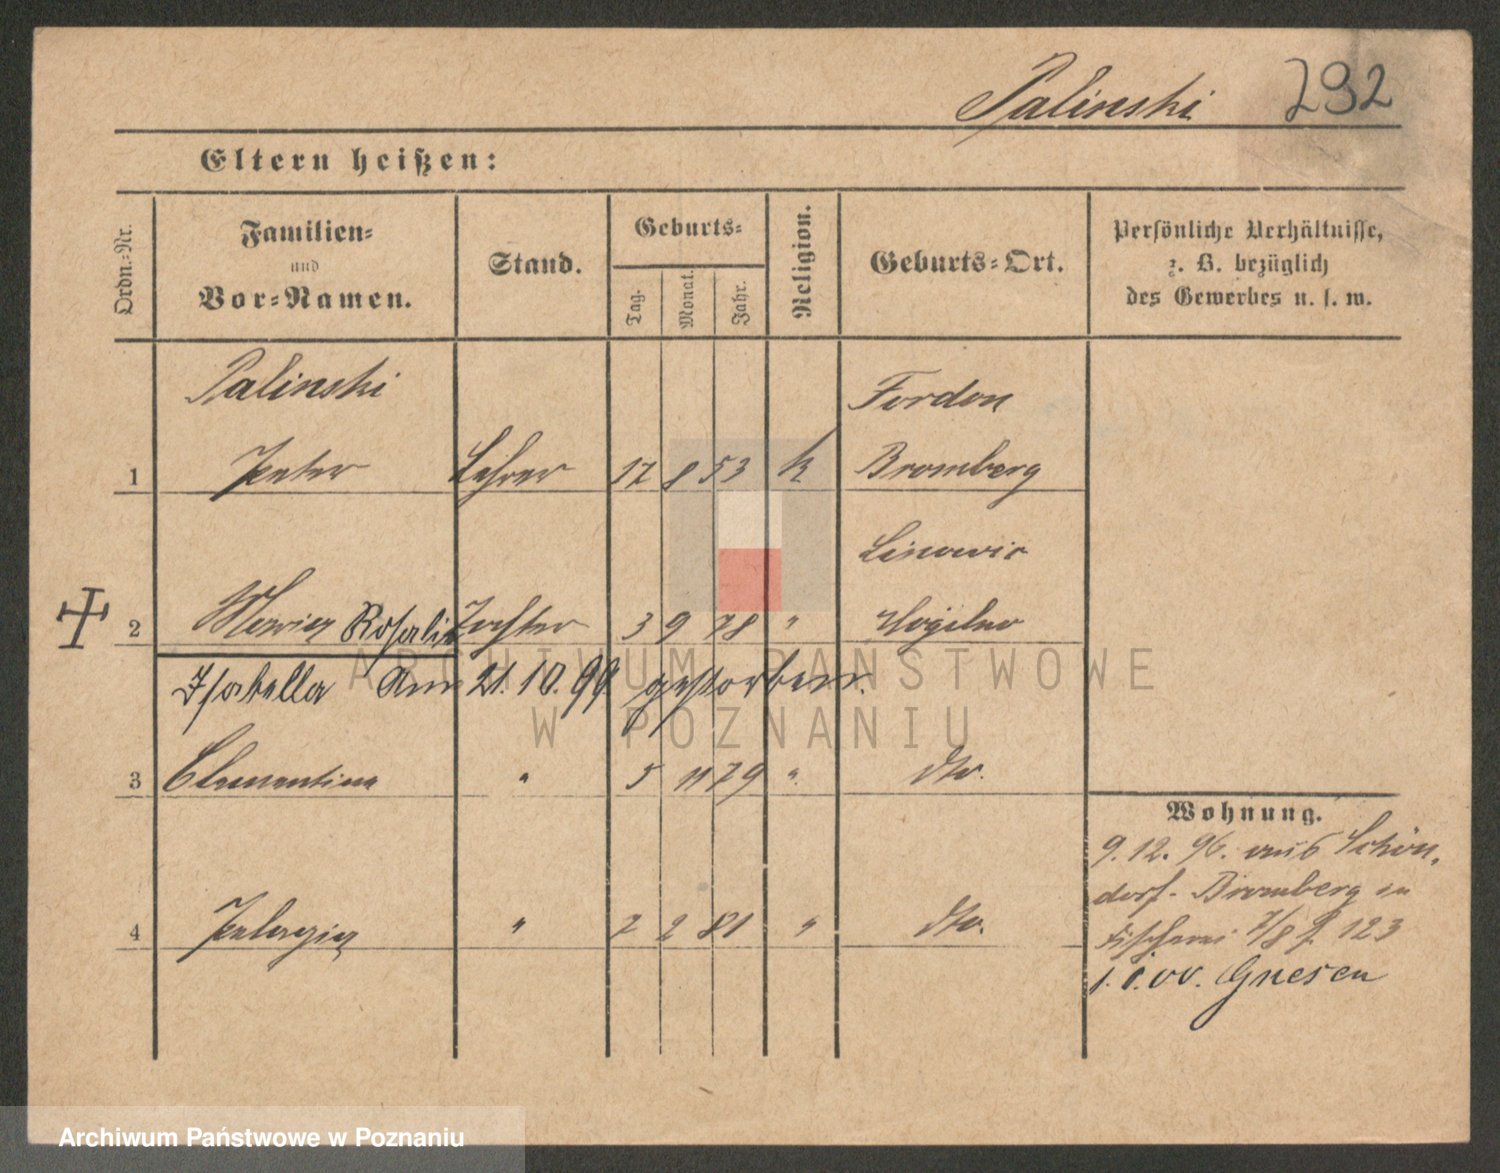 Palinski 292
Eltern heißen:
Ordn.-Nr.
Familien-
und
Vor-Namen.
Stand.
Geburts-
Tag.
Monat.
Jahr.
Religion.
Geburts-Ort.
Persönliche Verhältnisse,
z. B. bezüglich
des Gewerbes u. s. w.
Palinski
Fordon
1 Peter Lehrer 17 8 53 k Bromberg
Linowic
2 Maria Rosalie Tochter 3 9 78 " Mogilno
Isabella Am 21. 10. 99 gestorben.
3 Clementine " 5 11 79 " dto.
4 Pelagia " 7 2 81 " dto.
Wohnung.
9.12.96. aus Schön-
dorf - Bromberg in
Fischerei 7/8 P. 123
1. 1. 00. Gnesen
ARCHIWUM PAŃSTWOWE
W POZNANIU
Archiwum Państwowe w Poznaniu